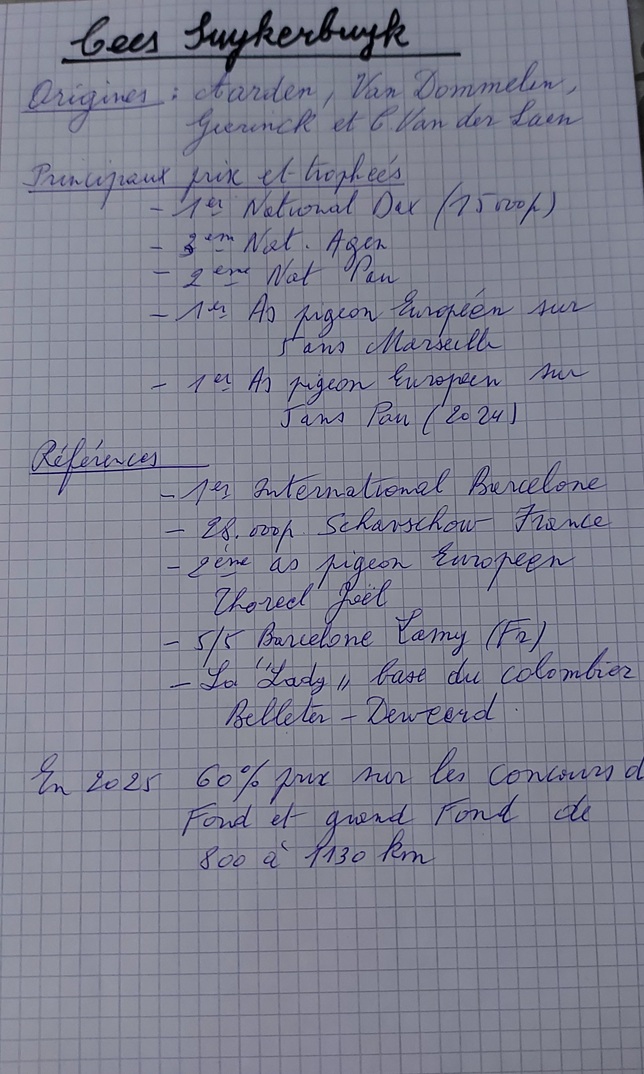 Cees Suykerbuyk
Origines : Aarden, Van Dommelen,
Gierinck et C. Van der Laen
Principaux prix et trophées
- 1er National Dax (15000p)
- 3em Nat. Agen
- 2ème Nat Pau
- 1er As pigeon Européen sur
5 ans Marseille
- 1er As pigeon Europeen sur
5 ans Pau (2024)
Références
- 1er International Barcelone
- 28.000p Scharschow France
- 2ème as pigeon Europeen
Thored Joël
- 5/5 Barcelone Lamy (Fr)
- La "Lady" base du colombier
Belleter - Deweerd
En 2025 60% prix sur les concours d
Fond et grand Fond de
800 à 1130 km